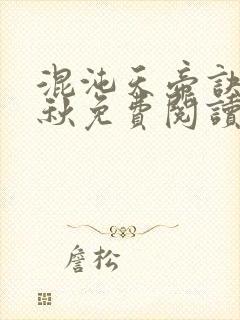 混沌天帝訣
秋免費閱讀
詹松